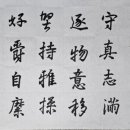 守真志滿
逐物意移
堅持雅操
好爵自縻